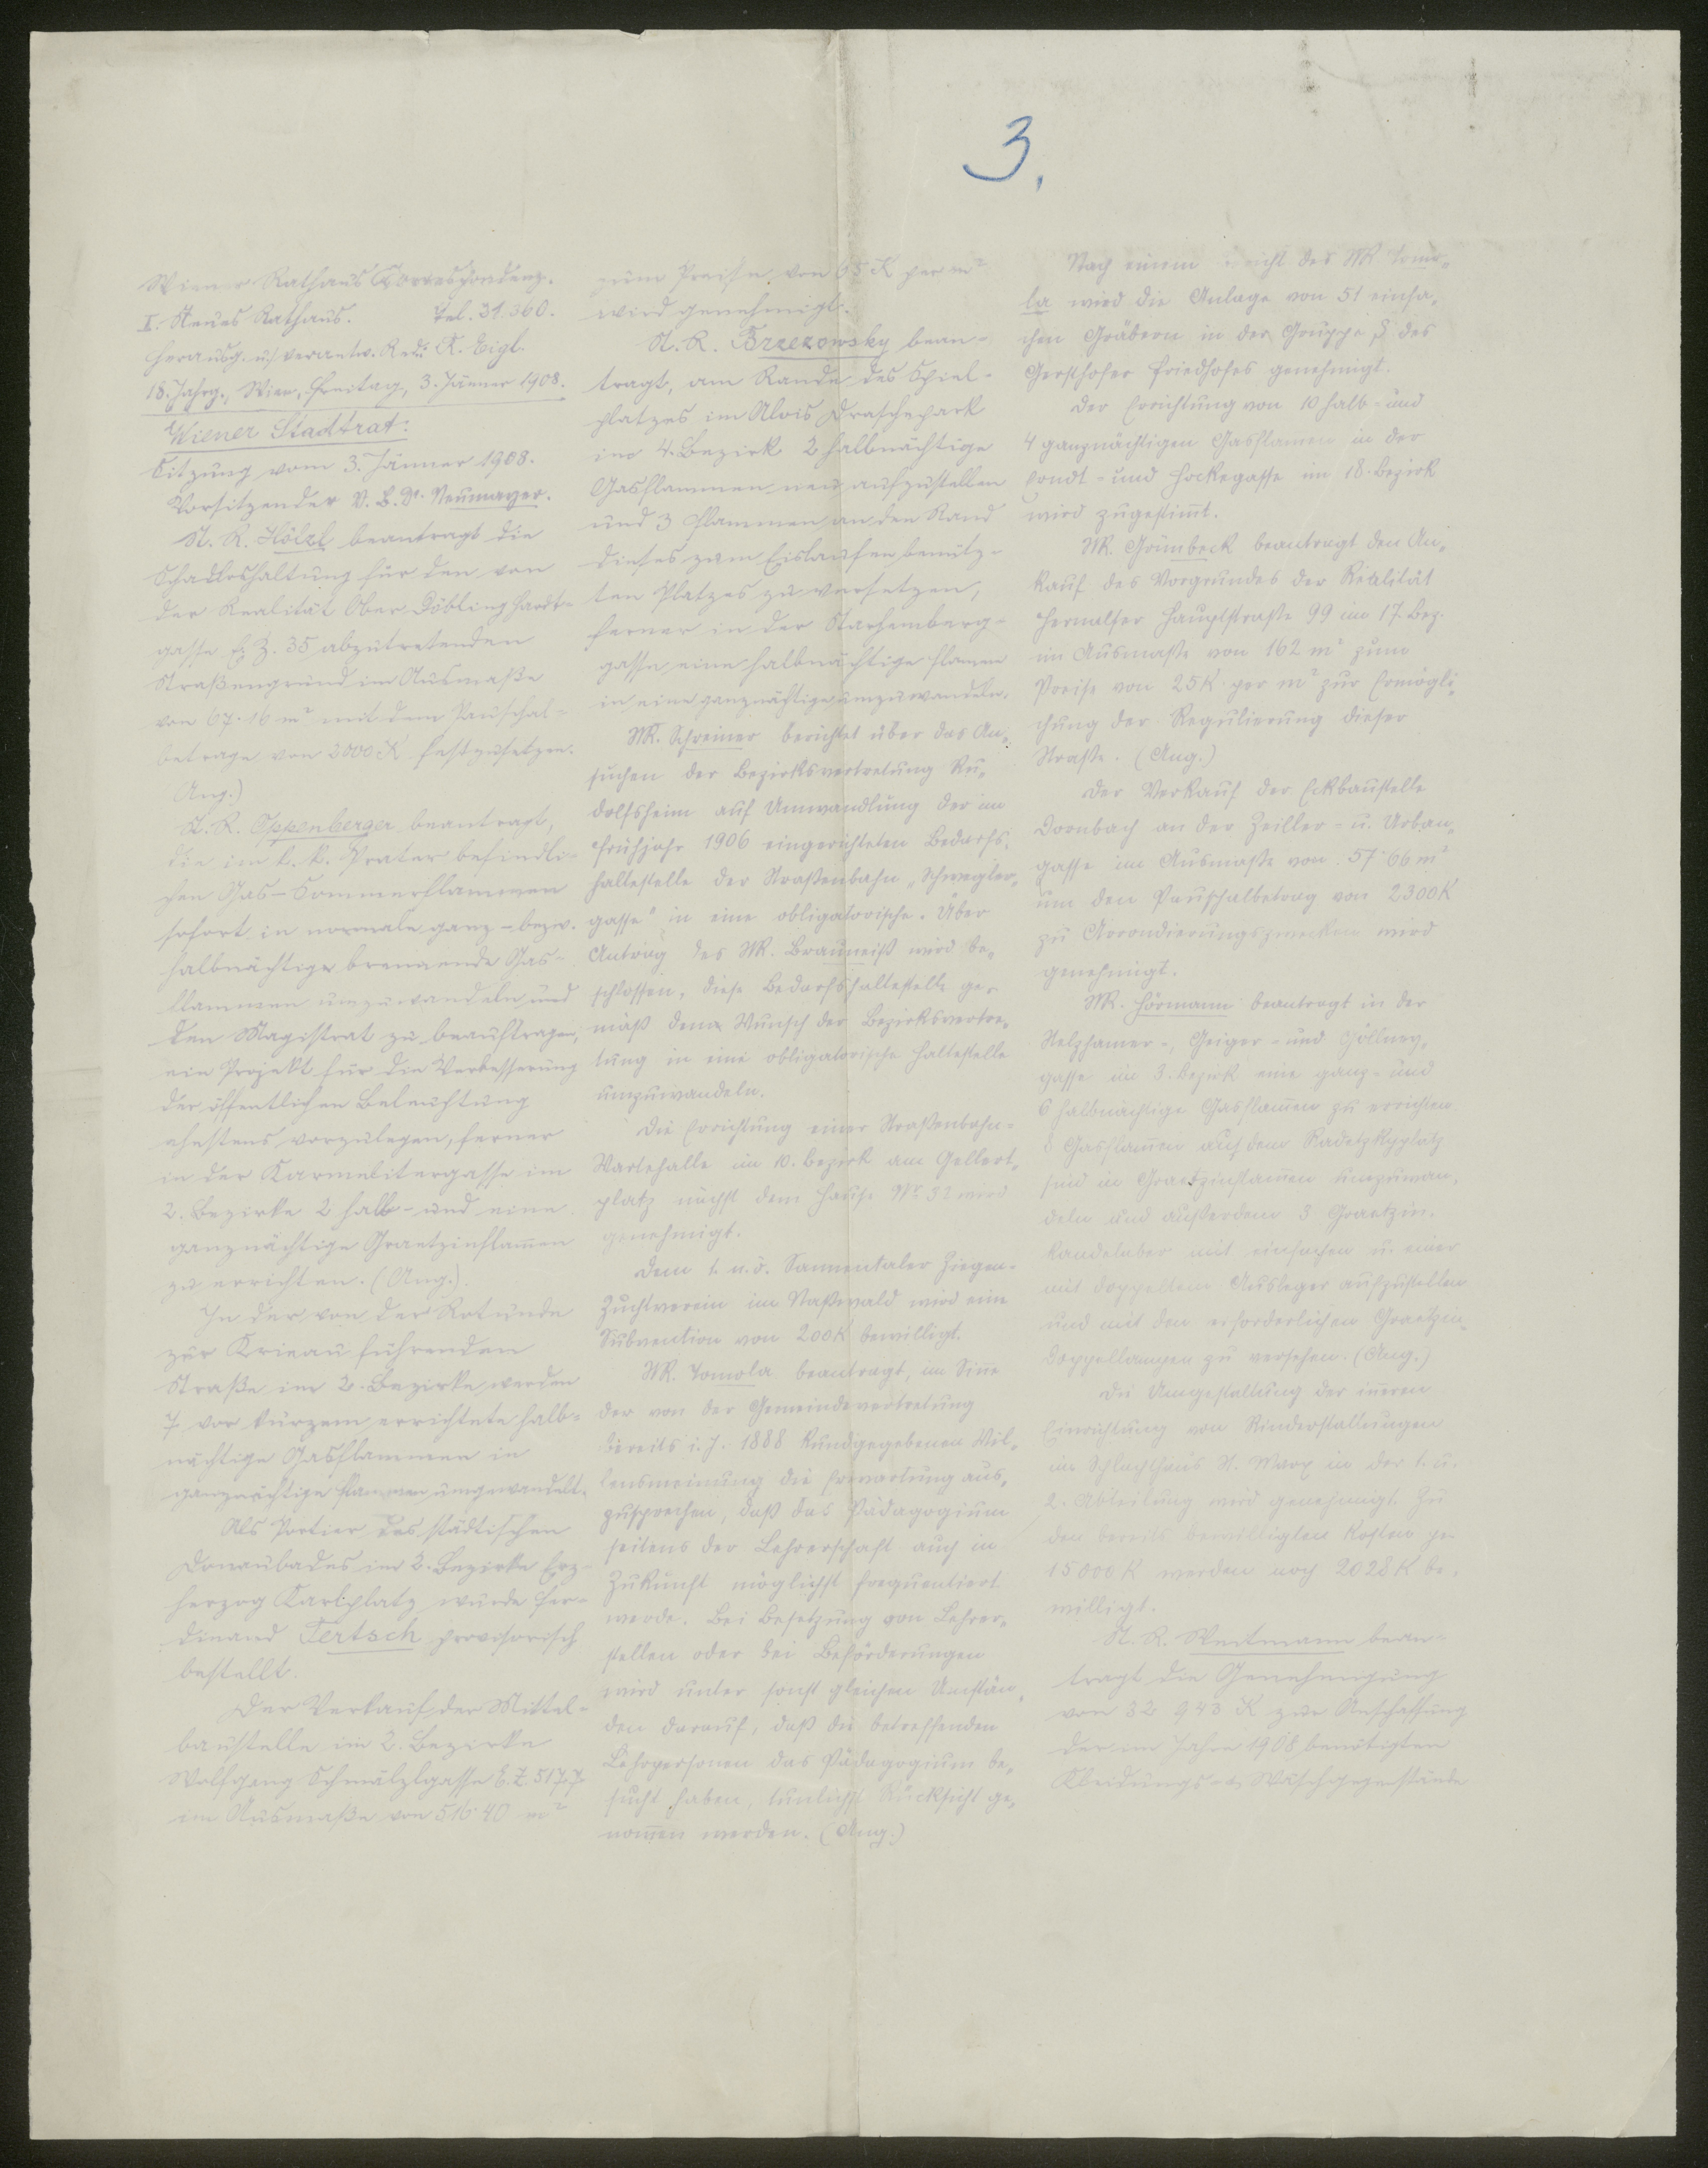 3.
Wiener Rathaus Correspondenz.
I. Neues Rathaus. Tel. 31.360.
Herausg. u. verantw. Red.: R. Eigl.
18. Jahrg., Wien, Freitag, 3. Jänner 1908.
Wiener Stadtrat:
Sitzung vom 3. Jänner 1908.
Vorsitzender V. B. Dr. Neumayer.
St. R. Hölzl beantragt die
Schadloshaltung für den von
der Realität Ober Döbling Hardt-
gasse E. Z. 35 abzutretenden
Straßengrund im Ausmaße
von 67·16 m² mit dem Pauschal-
betrage von 2000 K festzusetzen.
Ang.)
St. R. Oppenberger beantragt,
die im k. k. Prater befindli-
chen Gas-Sommerflammen
sofort in normale ganz- bezw.
halbnächtige brennende Gas-
flammen umzuwandeln und
den Magistrat zu beauftragen,
ein Projekt für die Verbesserung
der öffentlichen Beleuchtung
ehestens vorzulegen, ferner
in der Karmelitergasse im
2. Bezirke 2 halb- und eine
ganznächtige Graetzinflam̄en
zu errichten. (Ang.).
In der von der Rotunde
zur Krieau führenden
Straße im 2. Bezirke werden
7 vor kurzem errichtete halb-
nächtige Gasflammen in
ganznächtige Flammen umgewandelt.
Als Portier des städtischen
Donaubades im 2. Bezirke Erz-
herzog Karlplatz wurde Fer-
dinand Tertsch provisorisch
bestellt.
Der Verkauf der Mittel-
baustelle im 2. Bezirke
Wolfgang Schmälzlgasse E. Z. 5177
im Ausmaße von 516·40 m²
zum Preise von 65 K per m²
wird genehmigt.
St. R. Brzezowsky bean-
tragt, am Rande des Spiel-
platzes im Alois Draschepark
im 4. Bezirk 2 halbnächtige
Gasflammen neu aufzustellen
und 3 Flammen an den Rand
dieses zum Eislaufen benütz-
ten Platzes zu versetzen,
ferner in der Starhemberg-
gasse eine halbnächtige Flamme
in eine ganznächtige umzuwandeln.
StR. Schreiner berichtet über das An-
suchen der Bezirksvertretung Ru-
dolfsheim auf Umwandlung der im
Frühjahr 1906 eingerichteten Bedarfs-
haltestelle der Straßenbahn „Schwegler-
gasse" in eine obligatorische. Über
Antrag des StR. Brauneiß wird be-
schlossen, diese Bedarfshaltestelle ge-
mäß dem Wunsch der Bezirksvertre-
tung in eine obligatorische Haltestelle
umzuwandeln.
Die Errichtung einer Straßenbahn-
Wartehalle im 10. Bezirk am Gellert-
platz nächst dem Hause Nr. 32 wird
genehmigt.
Dem 1. n. ö. Sannentaler Ziegen-
Zuchtverein im Naßwald wird eine
Subvention von 200 K bewilligt.
StR. Tomola beantragt, im Sin̄e
der von der Gemeindevertretung
bereits i. J. 1888 kundgegebenen Wil-
lensmeinung die Erwartung aus-
zusprechen, daß das Pädagogium
seitens der Lehrerschaft auch in
Zukunft möglichst frequentiert
werde. Bei Besetzung von Lehrer-
stellen oder bei Beförderungen
wird unter sonst gleichen Umstän-
den darauf, daß die betreffenden
Lehrpersonen das Pädagogium be-
sucht haben, tunlichst Rücksicht ge-
nom̄en werden. (Ang.)
Nach einem des StR. Tomo-
la wird die Anlage von 51 einfa-
chen Gräbern in der Gruppe des
Gersthofer Friedhofes genehmigt.
Der Errichtung von 10 halb- und
4 ganznächtigen Gasflamen in der
und Hockegasse im 18. Bezirk
wird zugestim̄t.
StR. Grünbeck beantragt den An-
kauf des Vorgrundes der Realität
Hernalser Hauptstraße 99 im 17. Bez.
im Ausmaße von 162 m² zum
Preise von 25 K per m² zur Ermögli-
chung der Regulierung dieser
Straße. (Ang.)
Der Verkauf der Eckbaustelle
Dornbach an der Zeiller- u. Urban-
gasse im Ausmaße von 57·66 m²
um den Pauschalbetrag von 2300 K
zu Arrondierungszwecken wird
genehmigt.
StR. Hörmann beantragt in der
Stelzhamer-, Geiger- und Göllner-
gasse im 3. Bezirk eine ganz- und
6 halbnächtige Gasflam̄en zu errichten
Gasflam̄en auf dem Radetzkyplatz
sind in Graetzinflam̄en umzuwan-
deln und außerdem 3 Graetzin-
kandelaber mit einfachen u. einer
mit doppeltem Ausleger aufzustellen
und mit den erforderlichen Graetzin-
doppellampen zu versehen. (Ang.)
Die Umgestaltung der in̄eren
Einrichtung von Rinderstallungen
im Schlachthaus St. Marx in der 1. u.
2. Abteilung wird genehmigt. Zu
den bereits bewilligten Kosten per
15000 K werden noch 2028 K be-
willigt.
St. R. Weitmann bean-
tragt die Genehmigung
von 32 943 K zur Anschaffung
der im Jahre 1908 benötigten
Kleidungs- u. Wäschegegenstände